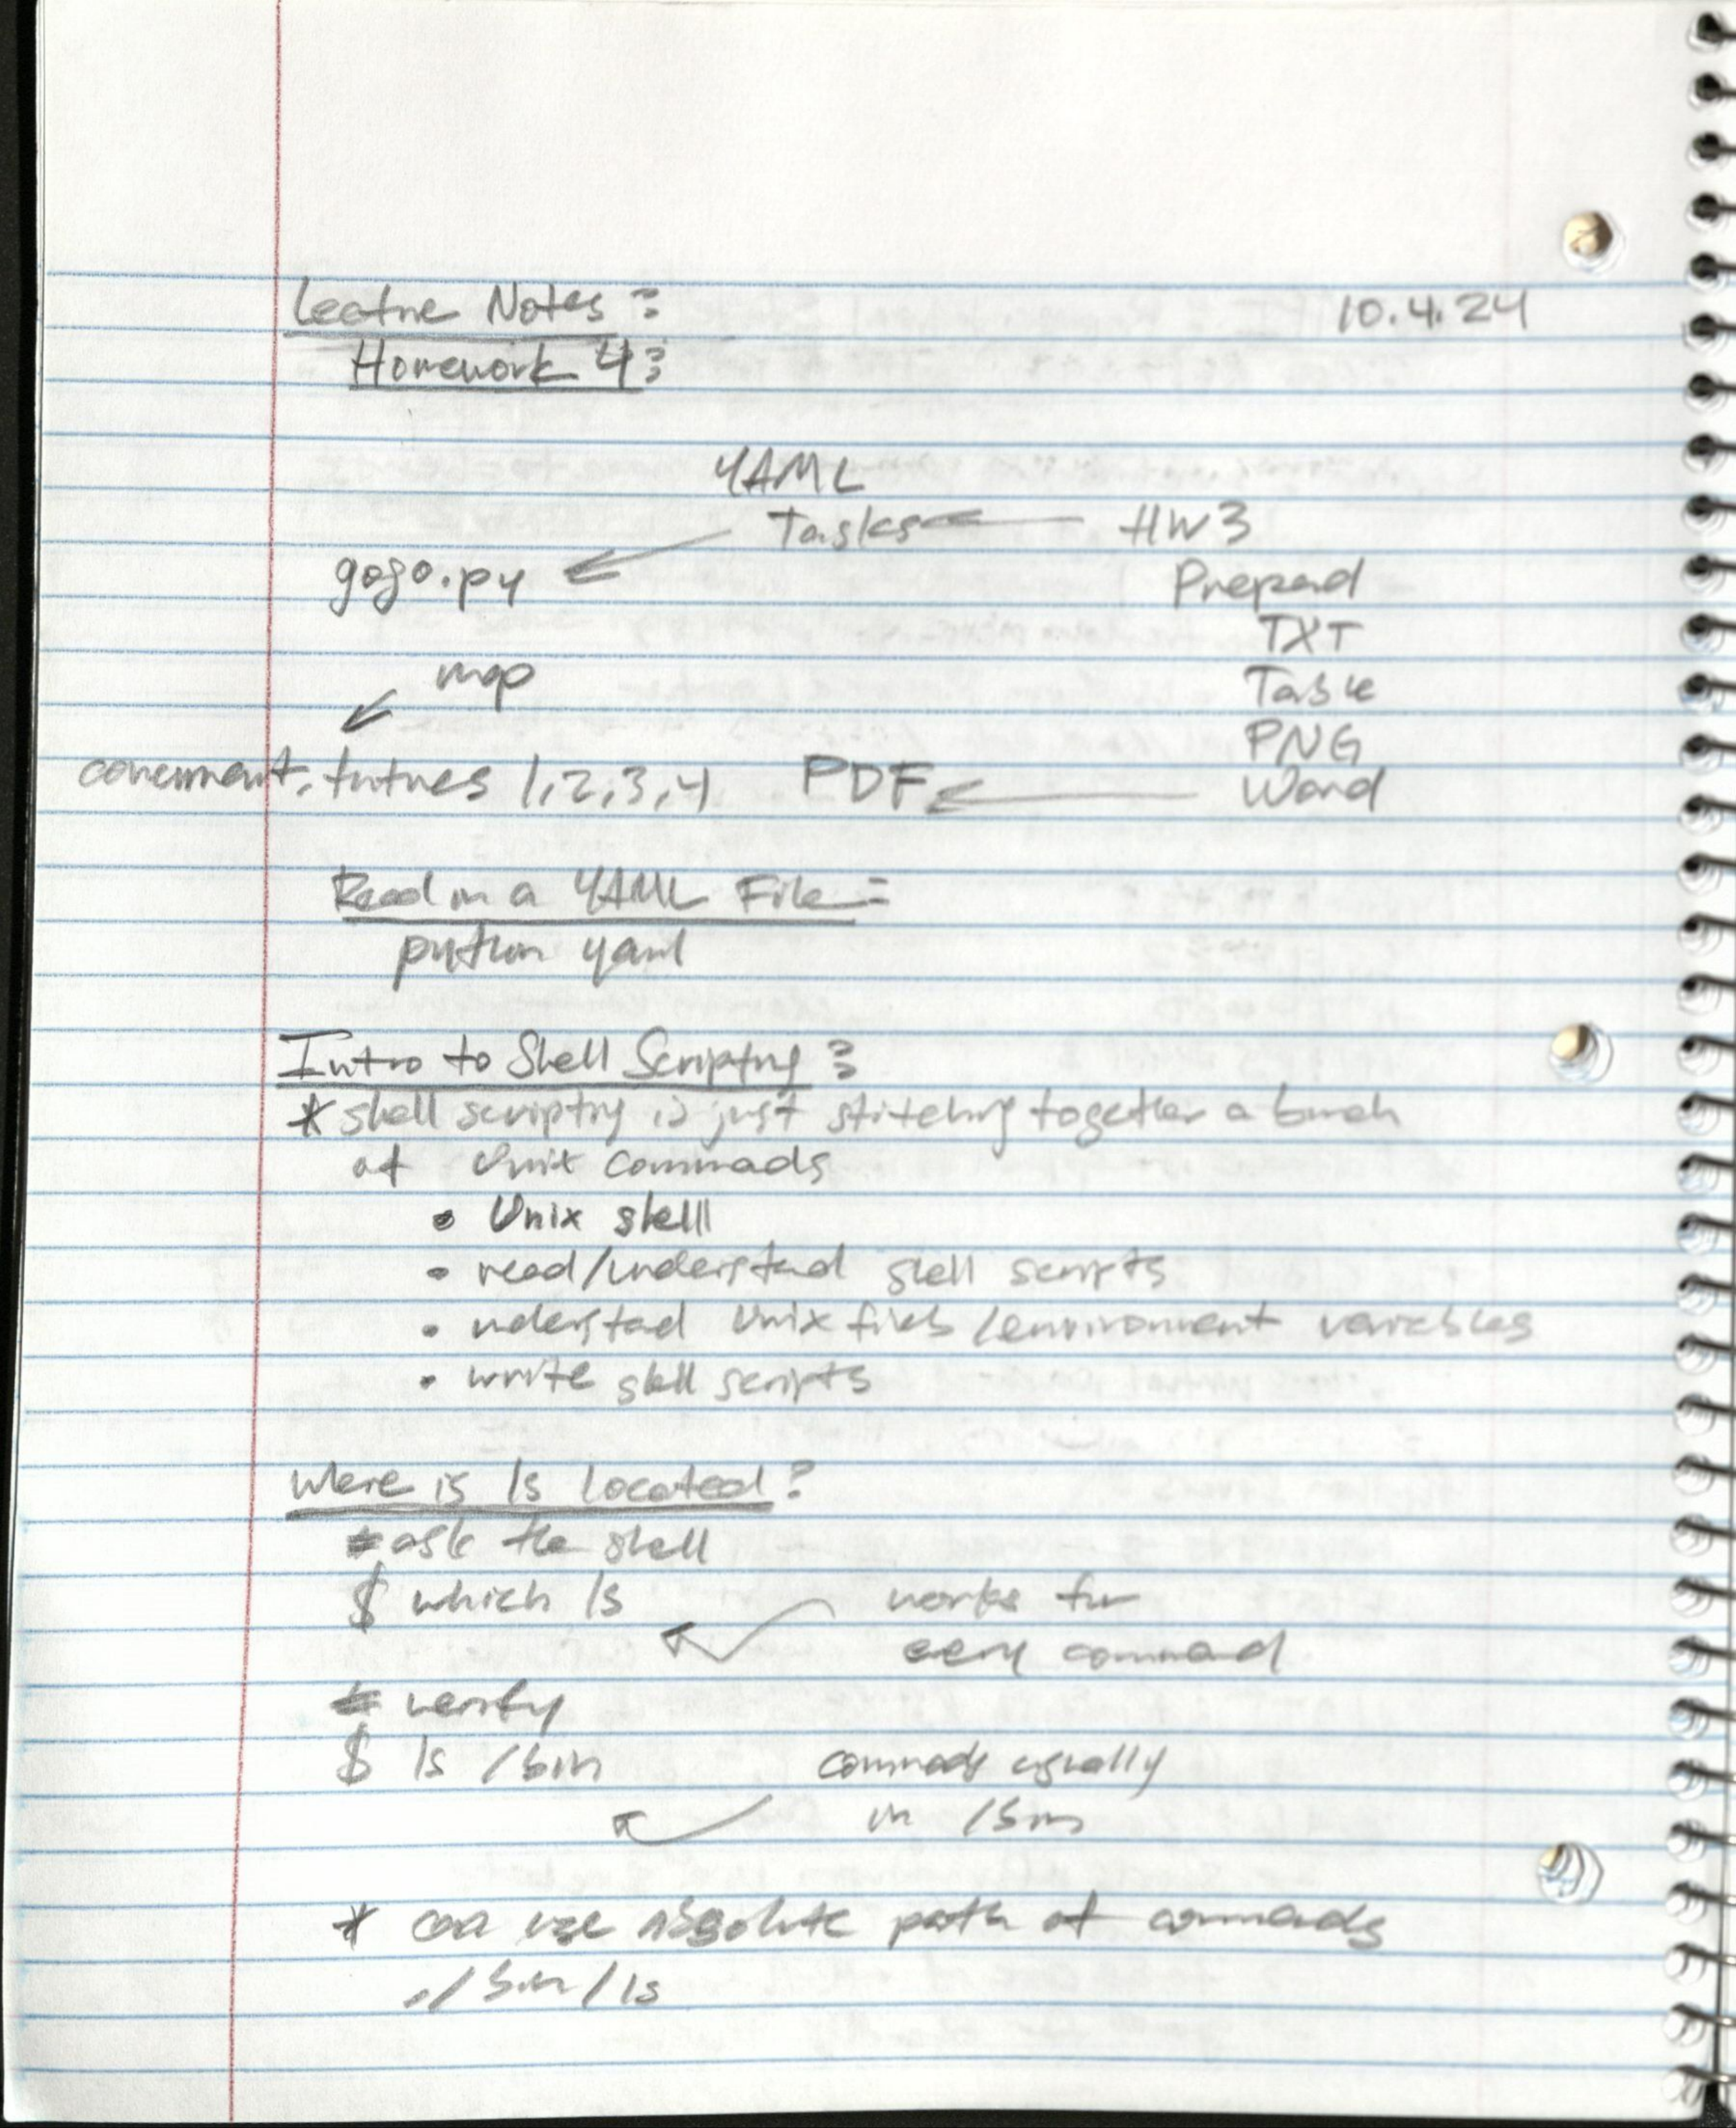 Lecture Notes: 10.4.24
Homework 4:
YAML
Tasks HW3
gogo.py Prepend
TXT
map Table
PNG
concurrent.futures 1,2,3,4 PDF Word
Read in a YAML File:
python yaml
Intro to Shell Scripting:
* shell scripting is just stitching together a bunch
of Unix commads
• Unix shell
• read/understand shell scripts
• understad Unix files/environment variables
• write shell scripts
Where is ls located?
# ask the shell
$ which ls works for
every command
# verify
$ ls /bin commads usually
in /bin
* can use absolute path of commads
./bin/ls